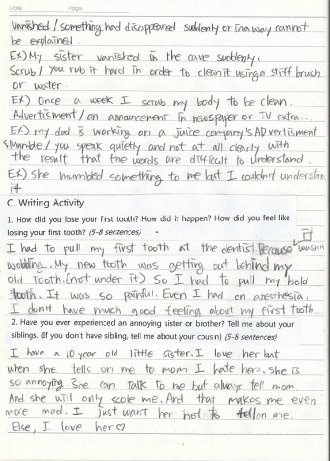 Vanished/ something had disappeared suddenly or in a way cannot
be explained.
EX) My sister vanished in the cave suddenly.
Scrub/ you rub it hard in order to clean it using a stiff brush
or water.
EX) Once a week I scrub my body to be clean.
Advertisment/ an announcement in newspaper or TV extra...
EX) my dad is working on a juice company's ADvertisment
Mumble/ you speak quietly and not at all clearly with
the result that the words are difficult to understand.
EX) She mumbled something to me but I couldn't understan
it
C. Writing Activity
1. How did you lose your first tooth? How did it happen? How did you feel like
losing your first tooth? (5-8 sentences)
I had to pull my first tooth at the dentist. Because it wasn't
wobbling. My new tooth was getting out behind my
old Tooth.(not under it) So I had to pull my
tooth. It was so painful. Even I had an anesthesia.
I don't have much good feeling about my first tooth..
2. Have you ever experienced an annoying sister or brother? Tell me about your
siblings. (If you don't have sibling, tell me about your cousn) (5-8 sentences)
I have a 10 year old little sister. I love her but
when she tells on me to mom I hate her. She is
so annoying. She can talk to me but always tell mom.
And she will only scole me. And that makes me even
more mad. I just want her not to tell on me.
Else, I love her♡